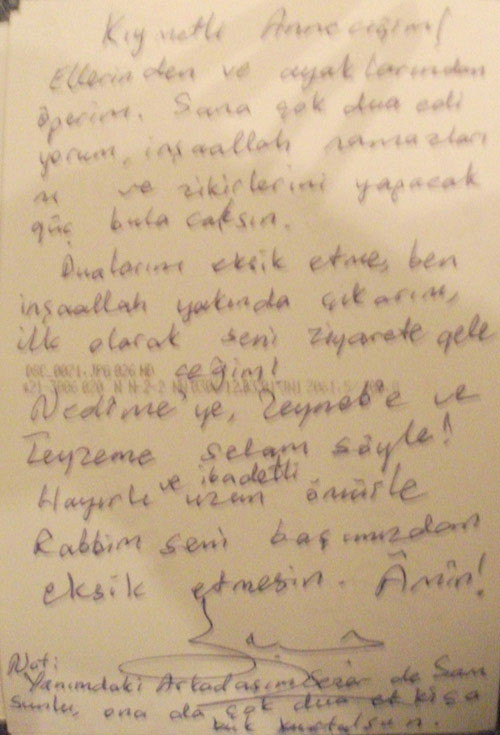 Kıymetli Anneciğim!
Ellerinden ve ayaklarından
öperim. Sana çok dua edi
yorum, inşaallah namazları
nı ve zikirlerini yapacak
güç bulacaksın.
Dualarını eksik etme, ben
inşaallah yakında çıkarım,
ilk olarak seni ziyarete gele
ceğim!
Nedime'ye, Zeyneb'e ve
Teyzeme selam söyle!
Hayırlı ve ibadetli uzun ömürle
Rabbim seni başımızdan
eksik etmesin. Âmin!
Not:
Yanımdaki Arkadaşım Sezer de Sam
sunlu, ona da çok dua et kişa